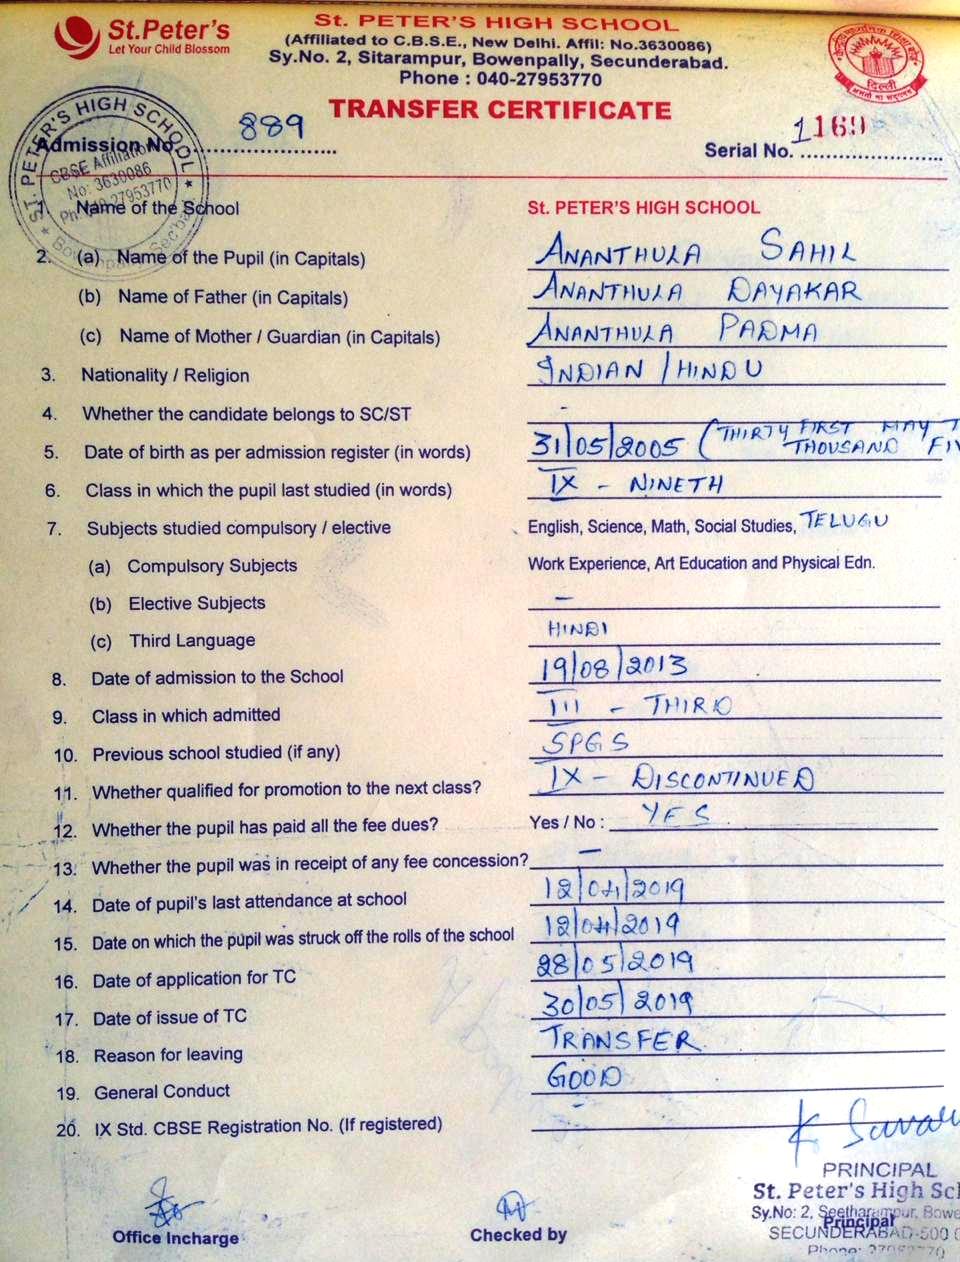 St.Peter's
Let Your Child Blossom
St. PETER'S HIGH SCHOOL
(Affiliated to C.B.S.E., New Delhi. Affil: No.3630086)
Sy.No. 2, Sitarampur, Bowenpally, Secunderabad.
Phone : 040-27953770
TRANSFER CERTIFICATE
दिल्ली
ST. PETER'S HIGH SCHOOL
CBSE Affiliation
No: 3630086
Admission No. 889
Serial No. 1169
1. Name of the School St. PETER'S HIGH SCHOOL
2. (a) Name of the Pupil (in Capitals) ANANTHULA SAHIL
(b) Name of Father (in Capitals) ANANTHULA DAYAKAR
(c) Name of Mother / Guardian (in Capitals) ANANTHULA PADMA
3. Nationality / Religion INDIAN / HINDU
4. Whether the candidate belongs to SC/ST -
5. Date of birth as per admission register (in words) 31/05/2005 (THIRTY FIRST MAY T
THOUSAND FIV
6. Class in which the pupil last studied (in words) IX - NINETH
7. Subjects studied compulsory / elective English, Science, Math, Social Studies, TELUGU
(a) Compulsory Subjects Work Experience, Art Education and Physical Edn.
(b) Elective Subjects -
(c) Third Language HINDI
8. Date of admission to the School 19/08/2013
9. Class in which admitted III - THIRD
10. Previous school studied (if any) SPGS
11. Whether qualified for promotion to the next class? IX - DISCONTINUED
12. Whether the pupil has paid all the fee dues? Yes / No : YES
13. Whether the pupil was in receipt of any fee concession? -
14. Date of pupil's last attendance at school 12/04/2019
15. Date on which the pupil was struck off the rolls of the school 12/04/2019
16. Date of application for TC 28/05/2019
17. Date of issue of TC 30/05/2019
18. Reason for leaving TRANSFER
19. General Conduct GOOD
20. IX Std. CBSE Registration No. (If registered) -
PRINCIPAL
St. Peter's High Sch
Sy.No: 2, Seetharampur, Bowe
Principal
SECUNDERABAD-500 0
Office Incharge
Checked by